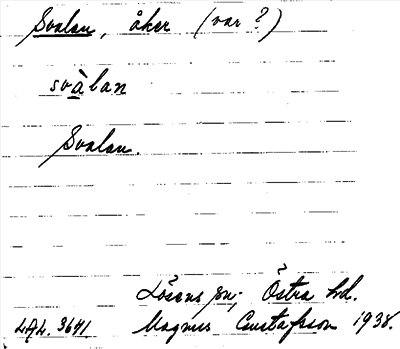 Svalan, åker (var?)
svàlan
Svalan.
Lösens sn; Östra hd.
LAL. 3641 Magnus Gustafsson 1938.